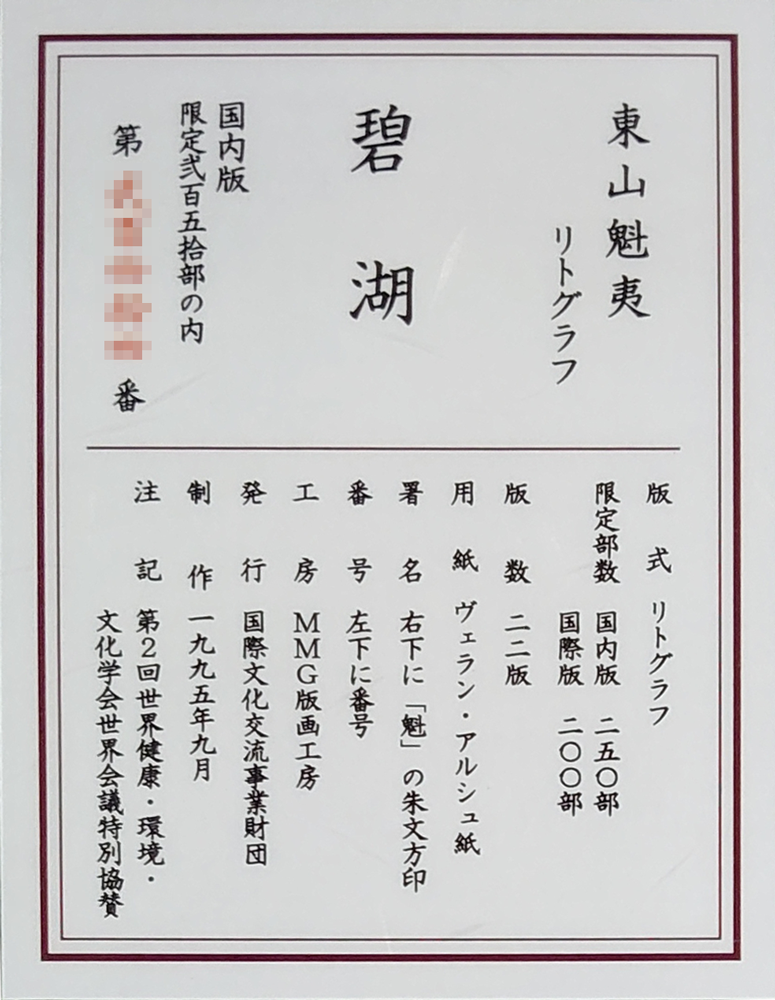 東山魁夷
リトグラフ
碧湖
国内版
限定弐百五拾部の内
第 番
版式 リトグラフ
限定部数 国内版 二五〇部
国際版 二〇〇部
版数 二二版
用紙 ヴェラン・アルシュ紙
署名 右下に「魁」の朱文方印
番号 左下に番号
工房 MMG版画工房
発行 国際文化交流事業財団
制作 一九九五年九月
注記 第2回世界健康・環境・
文化学会世界会議特別協賛